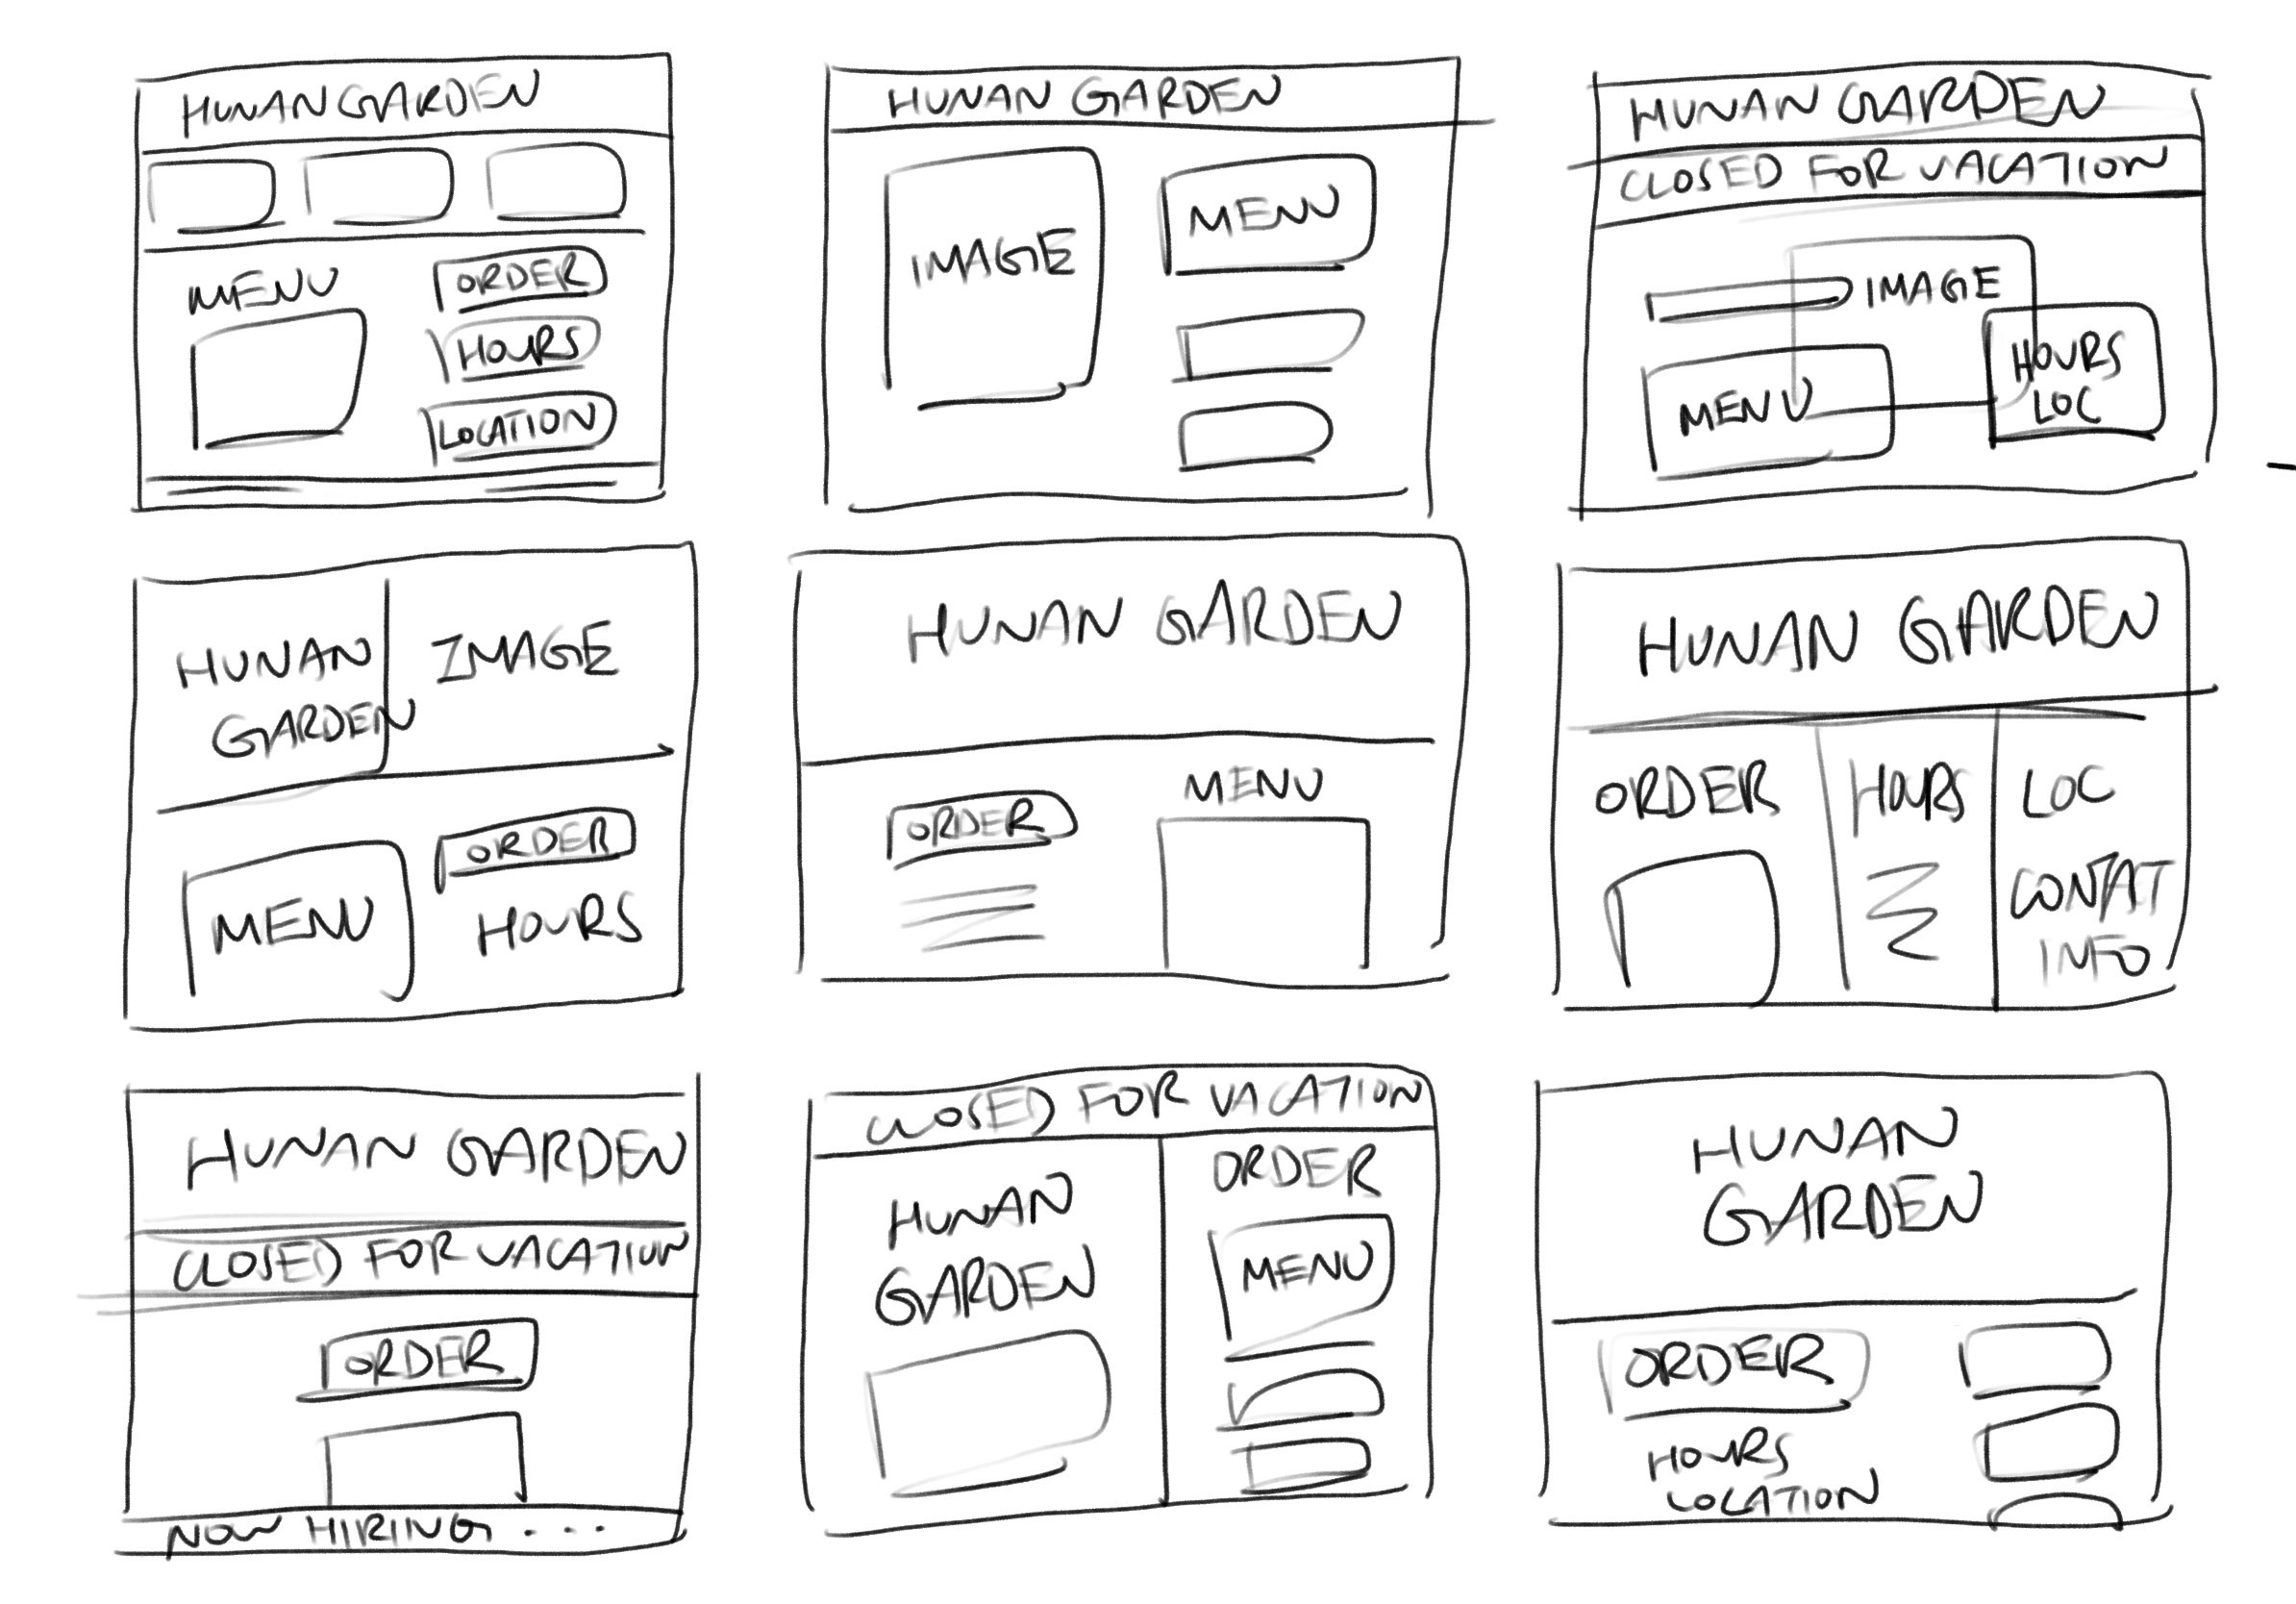 HUNAN GARDEN
MENU
ORDER
HOURS
LOCATION
HUNAN GARDEN
IMAGE
MENU
HUNAN GARDEN
CLOSED FOR VACATION
IMAGE
MENU
HOURS
LOC
HUNAN
GARDEN
IMAGE
MENU
ORDER
HOURS
HUNAN GARDEN
ORDER
MENU
HUNAN GARDEN
ORDER
HOURS
LOC
CONTAT
INFO
HUNAN GARDEN
CLOSED FOR VACATION
ORDER
NOW HIRING...
CLOSED FOR VACATION
HUNAN
GARDEN
ORDER
MENU
HUNAN
GARDEN
ORDER
HOURS
LOCATION